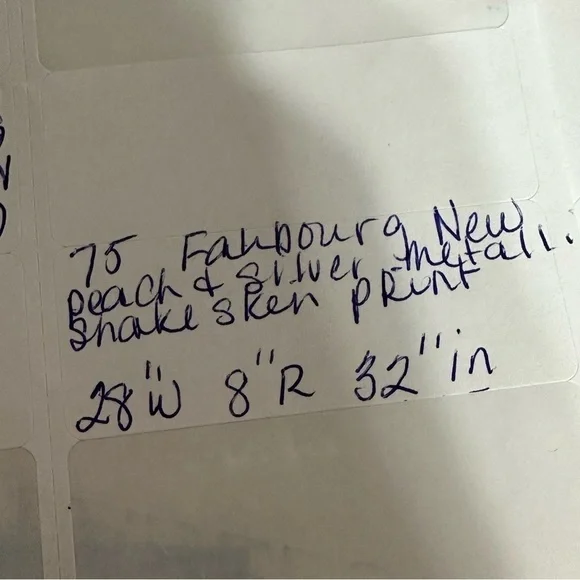 75 Faubourg New
peach & silver metall.
Snake sken print
28"W 8"R 32"in